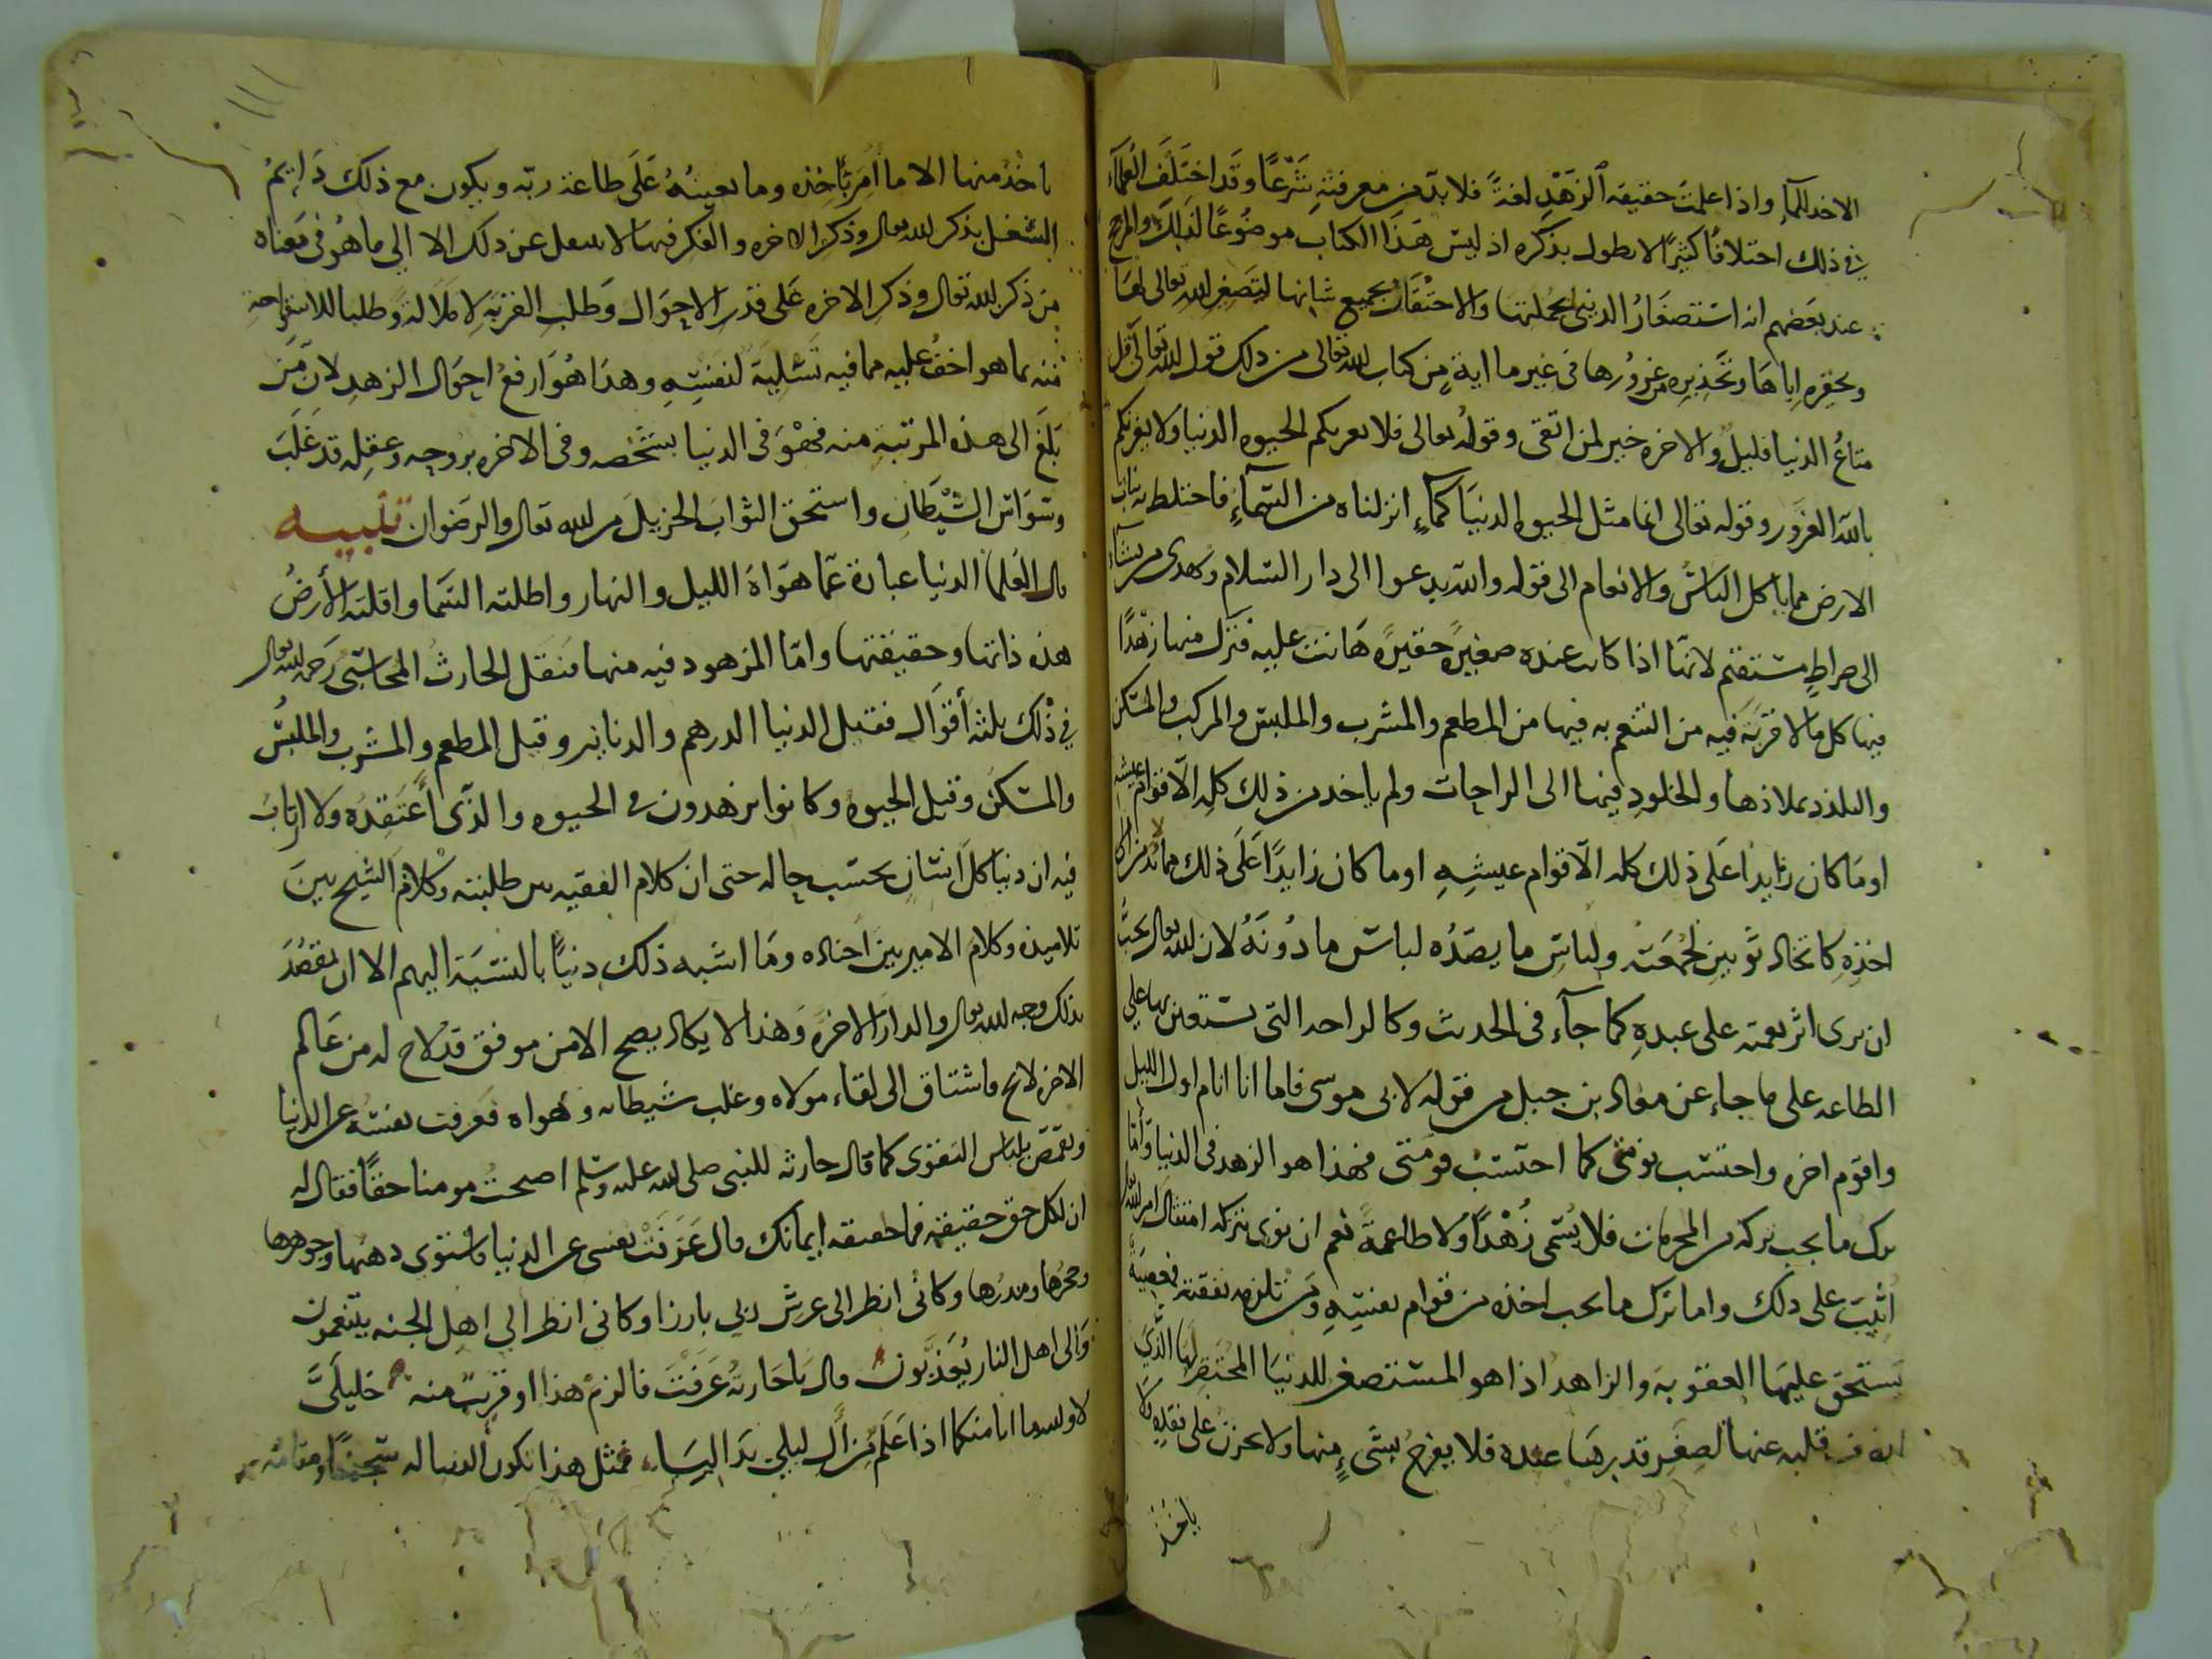 الاخد للما واذا علمت حقيقه الزهد لغة فلا بد من معرفته شرعا وقد اختلف العلماء
في ذلك اختلافا كثيرا لا نطول بذكره اذ ليس هذا الكتاب موضوعا لذلك والمرجح
عند بعضهم انه استصغار الدنيا بجملتها والاحتقار بجميع شانها لتصغير الله تعالى لها
وتحقيره اياها وتحذيره من غرورها في غير ما اية من كتاب الله تعالى من ذلك قول الله تعالى قل
متاع الدنيا قليل والاخره خير لمن اتقى وقوله تعالى فلا تغرنكم الحيوه الدنيا ولا يغرنكم
بالله الغرور وقوله تعالى انما مثل الحيوه الدنيا كماء انزلناه من السماء فاختلط به نبات
الارض مما ياكل الناس والانعام الى قوله والله يدعوا الى دار السلام ويهدى من يشاء
الى صراط مستقيم لانها اذا كانت عنده صغيرة حقيرة هانت عليه فترك منها زهدا
فيها كل ما لا قربة فيه من التنعم به فيها من المطعم والمشرب والملبس والمركب والمسكن
والتلذذ بملاذها والخلود فيها الى الراحات ولم ياخد من ذلك كله الا قوام عيشه
او ما كان زايدا على ذلك كله الا قوام عيشه او ما كان زايدا على ذلك مما
اخذه كاتخاد ثوبين لجمعته ولباس ما يصده لباس ما دونه لان الله تعالى يحب
ان يرى اثر نعمته على عبده كما جآء في الحديث وكالراحه التى يستعين بها على
الطاعه على ما جاء عن معاد بن جبل من قوله لابى موسى فاما انا انام اول الليل
واقوم اخره واحتسب نومتى كما احتسب قومتى فهذا هو الزهد في الدنيا واما
ترك ما يجب تركه من المحرمات فلا يسمى زهدا ولا طاعة نعم ان نوى بتركه امتثال امر الله تعالى
اثيب على ذلك واما ترك ما يجب اخذه من قوام نفسه ومن تلزمه نفقته فمعصية
يستحق عليها العقوبه والزاهد اذا هو المستصغر للدنيا المحتقر لها الذي
قلبه عنها لصغر قدرها عنده فلا يفرح بشىء منها ولا يحزن على فقده ولا
ياخذ
١١١
ياخذ منها الا ما امر باخذه وما يعينه على طاعة ربه ويكون مع ذلك دايم
الشغل بذكر الله تعالى وذكر الاخره والفكر فيها لا ينتقل عن ذلك الا الي ما هو في معناه
من ذكر الله تعالى وذكر الاخره على قدر الاحوال وطلب القربة لا ملالة وطلبا للاستراحة
منه بما هو اخف عليه مما فيه تسلية لنفسه وهذا هو ارفع احوال الزهد لان من
بلغ الى هذه المرتبة منه فهو في الدنيا بشخصه وفى الاخره بروحه وعقله قد غلب
وسواس الشيطان واستحق الثواب الجزيل من الله تعالى والرضوان تنبيه
قال العلما الدنيا عبارة عما هواه الليل والنهار واظلته السما واقلته الأرض
هذه ذاتها وحقيقتها واما المزهود فيه منها فنقل الحارث المحاسبى رحمه الله تعالى
في ذلك ثلثة أقوال فقيل الدنيا الدرهم والدنانير وقيل المطعم والمشرب والملبس
والمسكن وقيل الحيوة وكانوا يزهدون في الحيوه والذى أعتقده ولا ارتاب
فيه ان دنيا كل انسان بحسب حاله حتى ان كلام الفقيه بين طلبته وكلام الشيخ بين
تلاميذه وكلام الامير بين اجناده وما اشبه ذلك دنيا بالنسبة اليهم الا ان يقصد
بذلك وجه الله تعالى والدار الاخرة وهذا لا يكاد يصح الا من موفق قد لاح له من عالم
الاخره لايح فاشتاق الى لقاء مولاه وغلب شيطانه وهواه فعزفت نفسه عن الدنيا
وتقمص بلباس التقوى كما قال حارثه للنبى صلى الله عليه وسلم اصبحت مومنا حقا فقال له
ان لكل حق حقيقة فما حقيقه ايمانك قال عزفت نفسى عن الدنيا فاستوى ذهبها وجوهرها
وحجرها ومدرها وكأنى انظر الى عرش ربي بارزا وكانى انظر الي اهل الجنه يتنعمون
والى اهل النار يعذبون قال يا حارثه عرفت فالزم هذا او قريب منه خليلي
لا والله ما انا منكما اذا علم من ال ليلي بدا ليا فمثل هذا تكون الدنيا له سجنا ومقامه